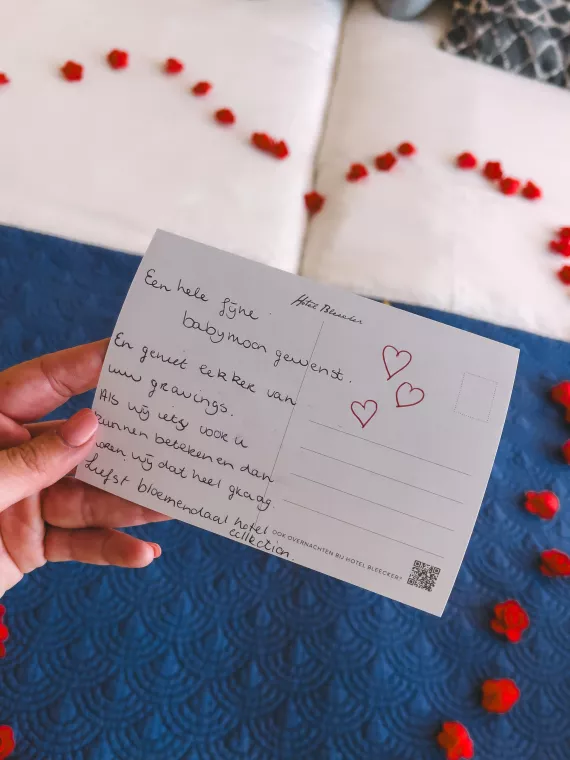 Hotel Bleecker
Een hele fijne
babymoon gewenst.
En geniet lekker van
uw gravings.
Als wij iets voor u
kunnen betekenen dan
horen wij dat heel graag.
Liefst bloemendaal hotel
collection
OOK OVERNACHTEN BIJ HOTEL BLEECKER?